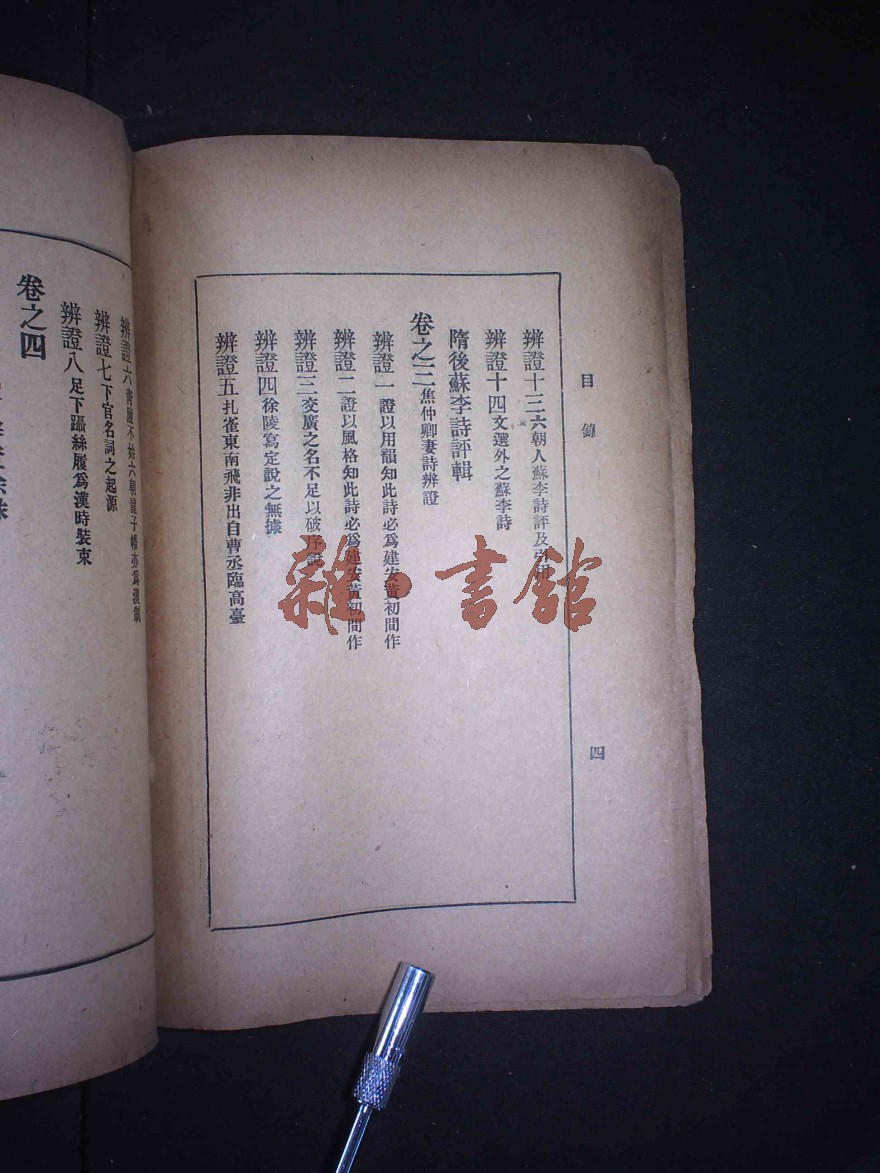 目錄
四
辨證十三六朝人蘇李詩評及引用
辨證十四文選外之蘇李詩
隋後蘇李詩評輯
卷之三焦仲卿妻詩辨證
辨證一證以用韻知此詩必爲建安黃初間作
辨證二證以風格知此詩必爲建安黃初間作
辨證三交廣之名不足以破序說
辨證四徐陵寫定說之無據
辨證五孔雀東南飛非出自曹丕臨高臺
辨證六青廬不始六朝龍子幡亦爲漢制
辨證七下官名詞之起源
辨證八足下躡絲履爲漢時裝束
卷之四
雜·書館